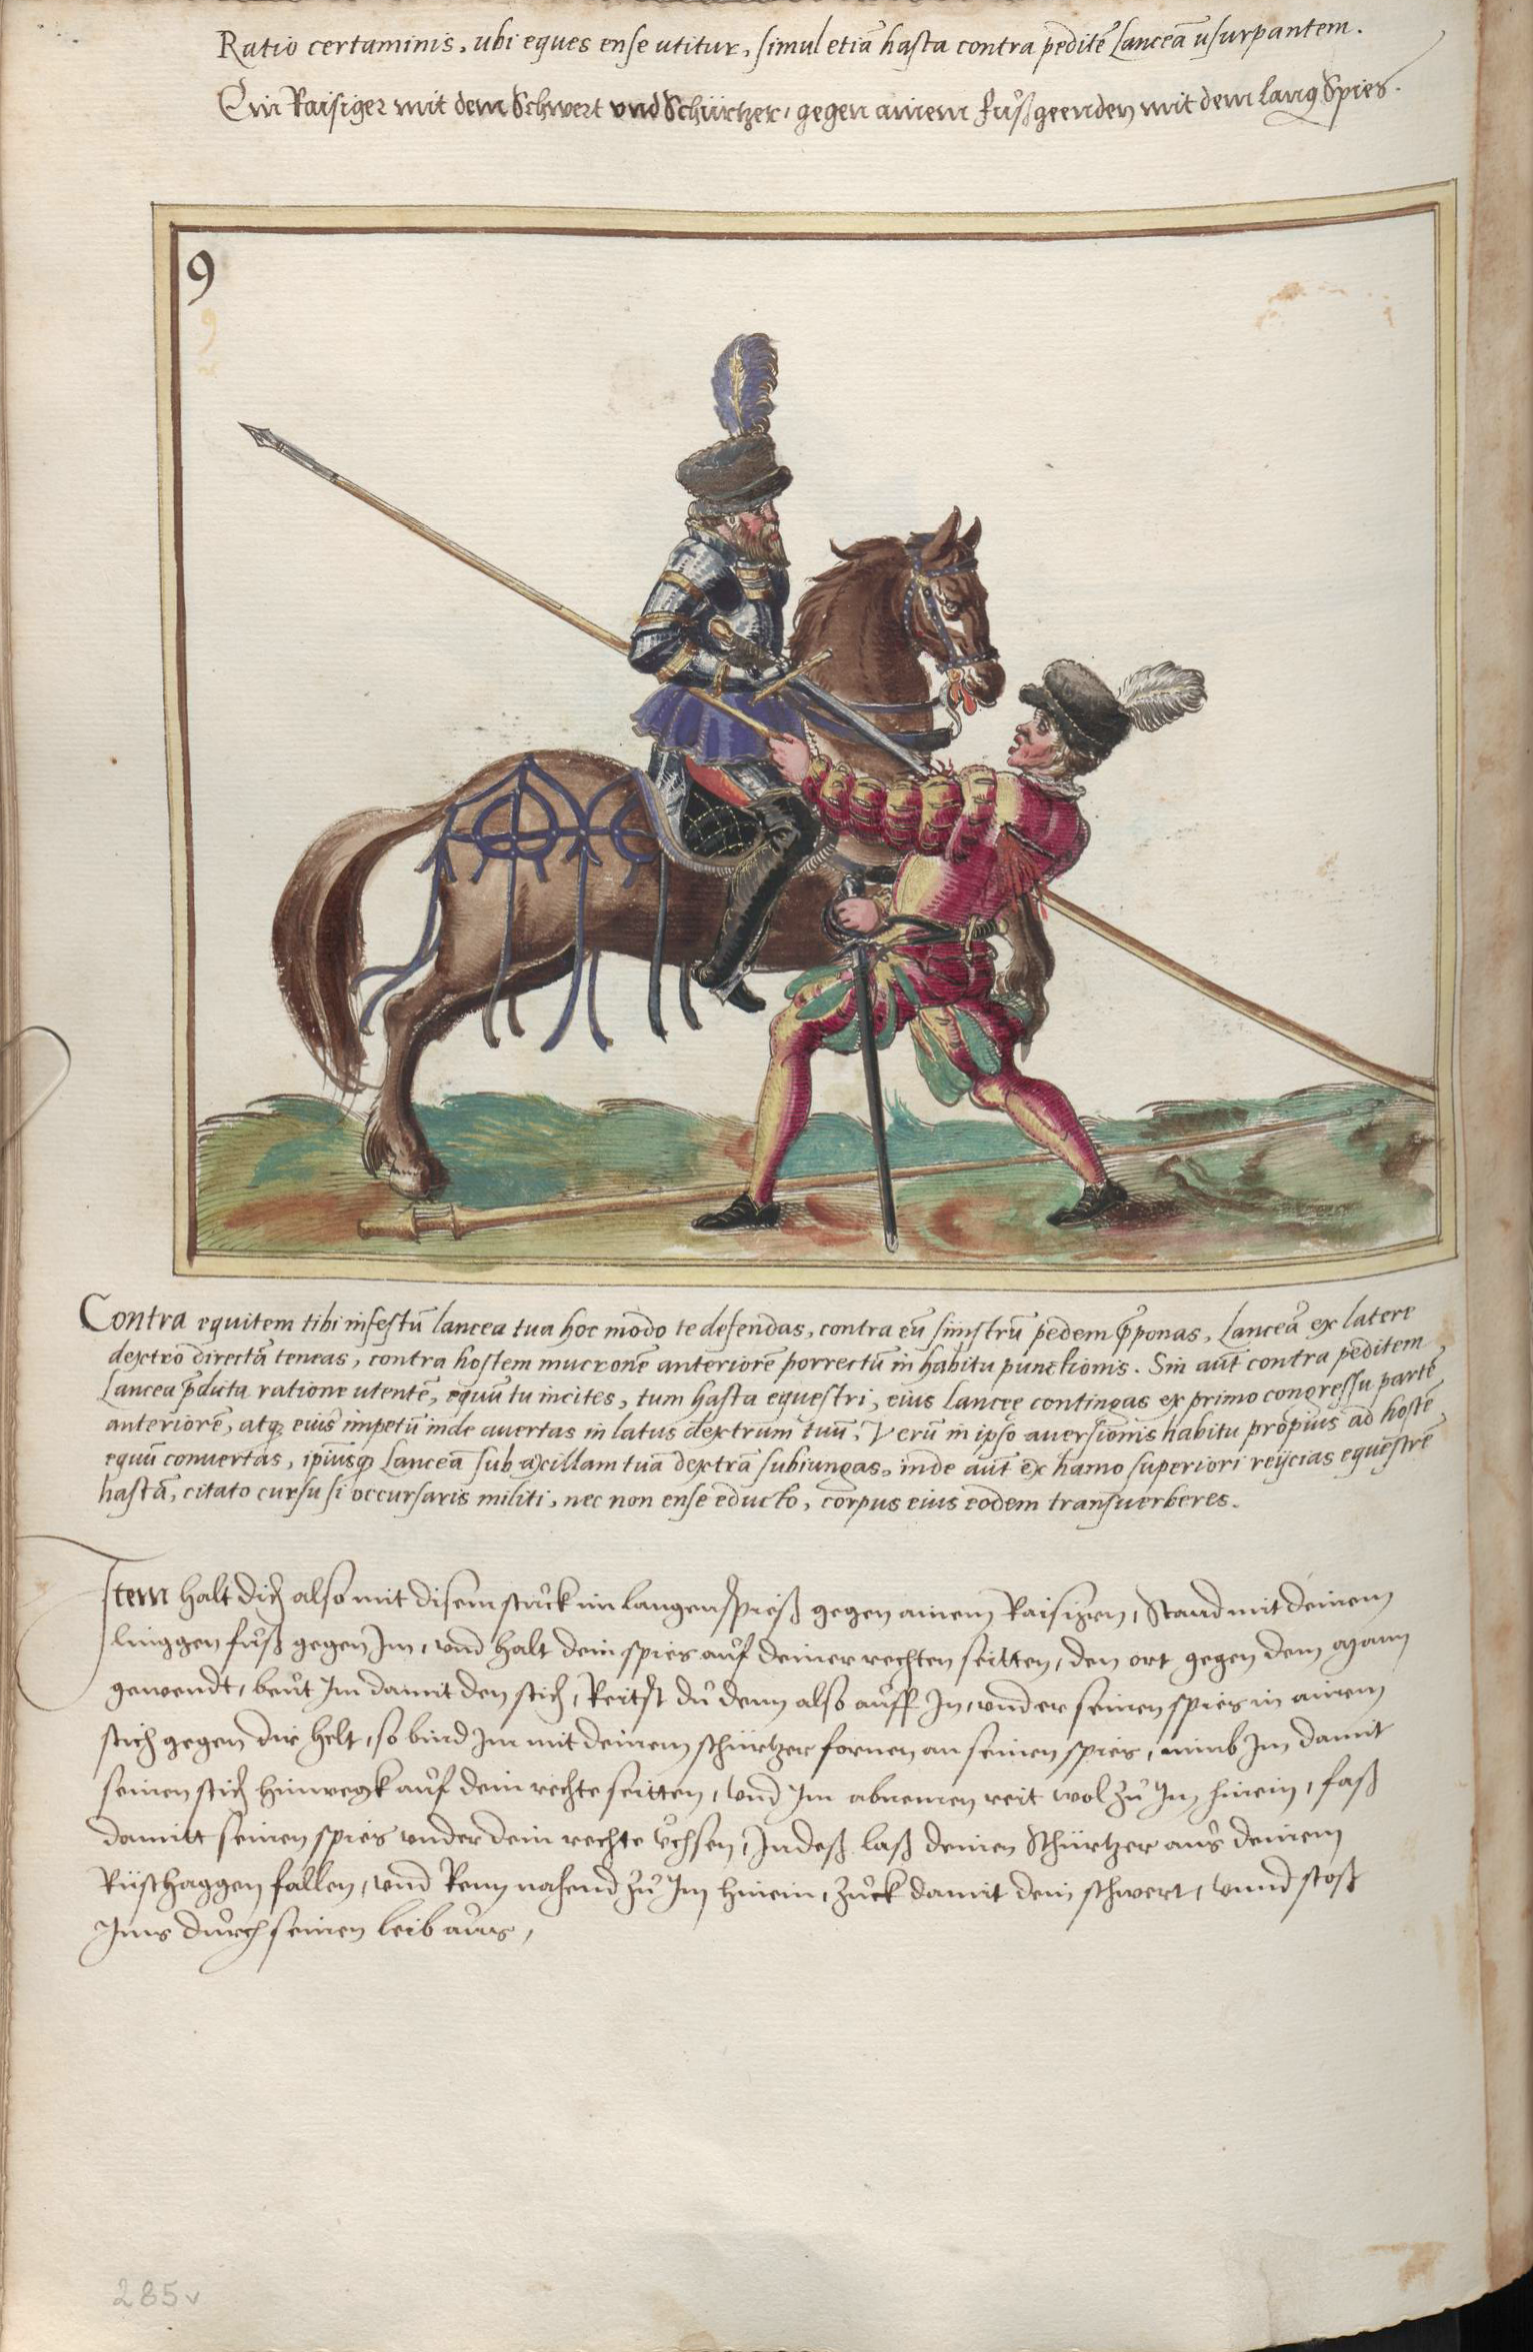 Ratio certaminis, ubi eques ense utitur, simul etiā hasta contra peditē lanceā usurpantem.
Ein Raisiger mit dem Schwert vnd Schürtzer, gegen ainem fůßgeenden mit dem lang Spies.
9
Contra equitem tibi infestū lancea tua hoc modo te defendas, contra eū sinistrū pedem p̄ponas, Lanceā ex latere
dextro directā teneas, contra hostem mucronē anteriorē porrectū in habitu punctionis. Sin aūt contra peditem
lancea p̄dicta ratione utentē, equū tu incites, tum hasta equestri, eius lancee contingas ex primo congressu partē
anteriorē, atq; eius impetū inde avertas in latus dextrum tuū; Verū in ipso aversionis habitu propius ad hostē
equū convertas, ipiusq; lanceā sub axillam tuā dextrā subiungas, inde aūt ex hamo superiori reijcias equestrē
hastā, citato cursu si occursaris militi, nec non ense educto, corpus eius eodem transverberes.
Item halt dich also mit disem stuck im langen spieß gegen ainem Raisigen, Stand mit deinem
linggen fůß gegen Im, vnd halt dein spies auf deiner rechten seitten, den ort gegen dem mann
gewendt, beut Im damit den stich, Reitst du dann also auff In, vnd er seinen spies in ainem
stich gegen dir helt, so bind Im mit deinem schürtzer fornen an seinen spies, nimb Im damit
seinen stich hinwegk auf dein rechte seitten, vnd Im abnemen reit wol zu Im hinein, faß
damitt seinen spies vnder dein rechte Vchsen, Indeß laß deinen Schürtzer aus deinem
Rüsthaggen fallen, vnd Renn nahend zu Im hinein, zuck damit dein schwert, vnnd stoß
Ims durch seinen leib aus,
285v